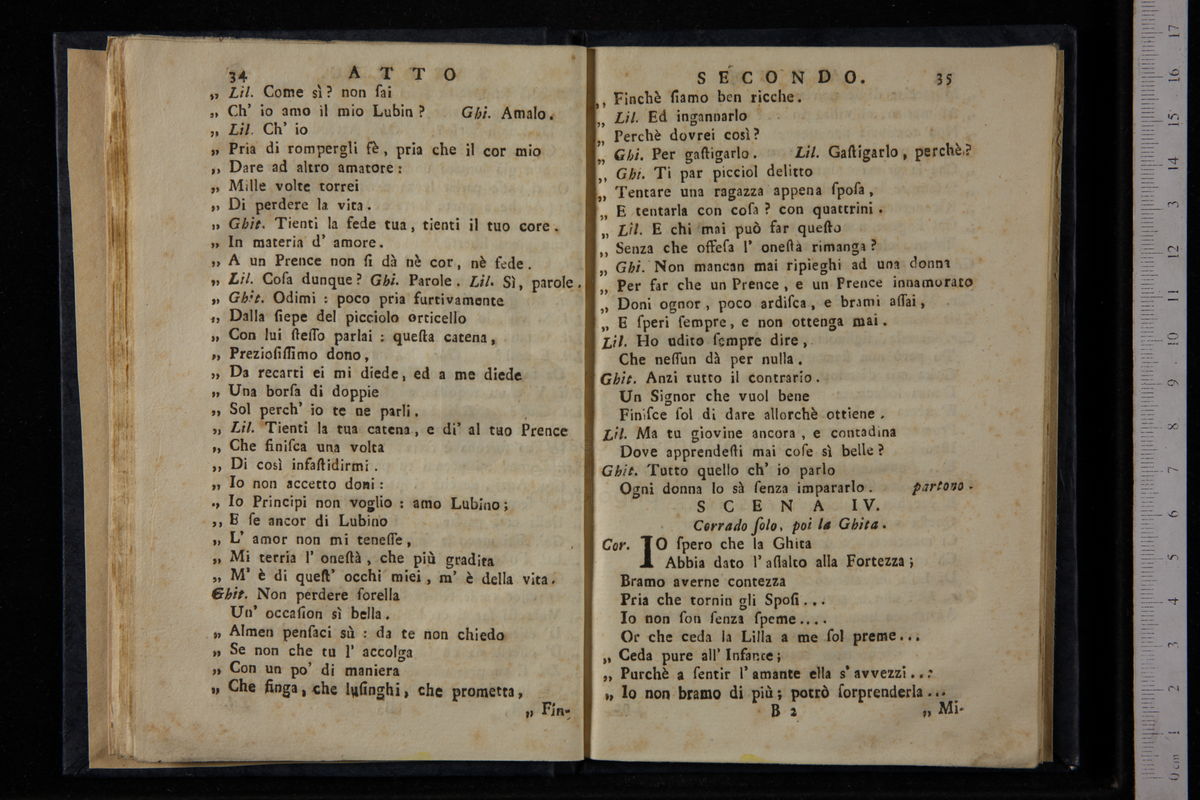 34 ATTO
„ Lil. Come sì? non ſai
„ Ch' io amo il mio Lubin? Ghi. Amalo.
„ Lil. Ch' io
„ Pria di rompergli fè, pria che il cor mio
„ Dare ad altro amatore:
„ Mille volte torrei
„ Di perdere la vita.
„ Ghit. Tienti la fede tua, tienti il tuo core.
„ In materia d' amore.
„ A un Prence non ſi dà nè cor, nè fede.
„ Lil. Coſa dunque? Ghi. Parole. Lil. Sì, parole.
„ Ghit. Odimi: poco pria furtivamente
„ Dalla ſiepe del picciolo orticello
„ Con lui ſteſſo parlai: queſta catena,
„ Prezioſiſſimo dono,
„ Da recarti ei mi diede, ed a me diede
„ Una borſa di doppie
„ Sol perch' io te ne parli.
„ Lil. Tienti la tua catena, e di' al tuo Prence
„ Che finiſca una volta
„ Di così infaſtidirmi.
„ Io non accetto doni:
„ Io Principi non voglio: amo Lubino;
„ E ſe ancor di Lubino
„ L' amor non mi teneſſe,
„ Mi terria l' oneſtà, che più gradita
„ M' è di queſt' occhi miei, m' è della vita.
Ghit. Non perdere ſorella
Un' occaſion sì bella.
„ Almen penſaci sù: da te non chiedo
„ Se non che tu l' accolga
„ Con un po' di maniera
„ Che finga, che luſinghi, che prometta,
„ Fin-
SECONDO. 35
„ Finchè ſiamo ben ricche.
„ Lil. Ed ingannarlo
„ Perchè dovrei così?
„ Ghi. Per gaſtigarlo. Lil. Gaſtigarlo, perchè?
„ Ghi. Ti par picciol delitto
„ Tentare una ragazza appena ſpoſa,
„ E tentarla con coſa? con quattrini.
„ Lil. E chi mai può far queſto
„ Senza che offeſa l' oneſtà rimanga?
„ Ghi. Non mancan mai ripieghi ad una donna
„ Per far che un Prence, e un Prence innamorato
„ Doni ognor, poco ardiſca, e brami aſſai,
„ E ſperi ſempre, e non ottenga mai.
Lil. Ho udito ſempre dire,
Che neſſun dà per nulla.
Ghit. Anzi tutto il contrario.
Un Signor che vuol bene
Finiſce ſol di dare allorchè ottiene.
Lil. Ma tu giovine ancora, e contadina
Dove apprendeſti mai coſe sì belle?
Ghit. Tutto quello ch' io parlo
Ogni donna lo sà ſenza impararlo. partono.
SCENA IV.
Corrado ſolo, poi la Ghita.
Cor. IO ſpero che la Ghita
Abbia dato l' aſſalto alla Fortezza;
Bramo averne contezza
Pria che tornin gli Spoſi...
Io non ſon ſenza ſpeme....
Or che ceda la Lilla a me ſol preme...
„ Ceda pure all' Infante;
„ Purchè a ſentir l' amante ella s' avvezzi...
„ Io non bramo di più; potrò ſorprenderla...
B 2 „ Mi-
0 cm 1 2 3 4 5 6 7 8 9 10 11 12 3 14 15 16 17